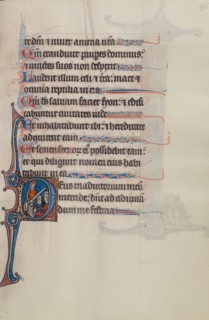 tedm̄ ⁊ uiuet anima ur̄a
Qm̄ exaudiuit paupes dominus:
⁊ uinctos suos non despexit
Laudent illum celi ⁊ t̄ra: mare ⁊
omnia reptilia in eis
Qm̄ ds̄ saluam faciet syon: ⁊ edifi
cabuntur ciuitates iude
Et inhabitabunt ibi: ⁊ hereditate
adquirent eam
Et semen seruoꝝ eius possidebit eam:
et qui diligunt nomen eius habi
tabunt in ea
Deus in adiutorium meū
intende: dn̄e ad adiuuan
dum me festina